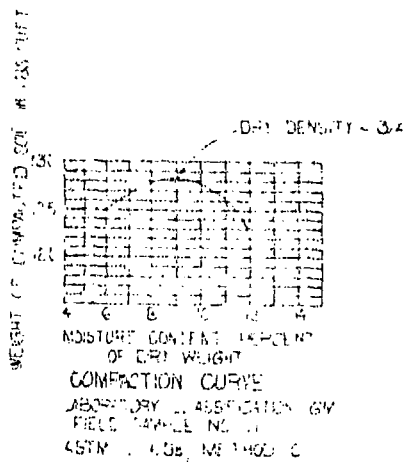 WEIGHT OF COMPACTED SOIL IN LBS
DRY DENSITY - 3/4
130
125
120
4 6 8 10 12 14
MOISTURE CONTENT PERCENT
OF DRY WEIGHT
COMPACTION CURVE
LABORATORY CLASSIFICATION GM
FIELD SAMPLE NO.
ASTM METHOD C